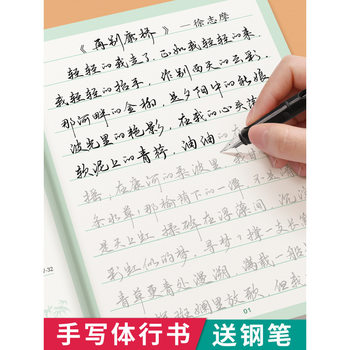 《再别康桥》——徐志摩
轻轻的我走了，正如我轻轻的来
我轻轻的招手，作别西天的云彩。
那河畔的金柳，是夕阳中的新娘
波光里的艳影，在我的心头荡
软泥上的青荇，油油的在
摇，在康河的柔波里，我甘
条水草 那榆荫下的一潭，不是清
是天上虹 揉碎在浮藻间，沉淀
彩虹似的梦，寻梦？撑一支长篙
青草更青处漫溯，满载一船
斑斓里放歌，但我
01
手写体行书 送钢笔